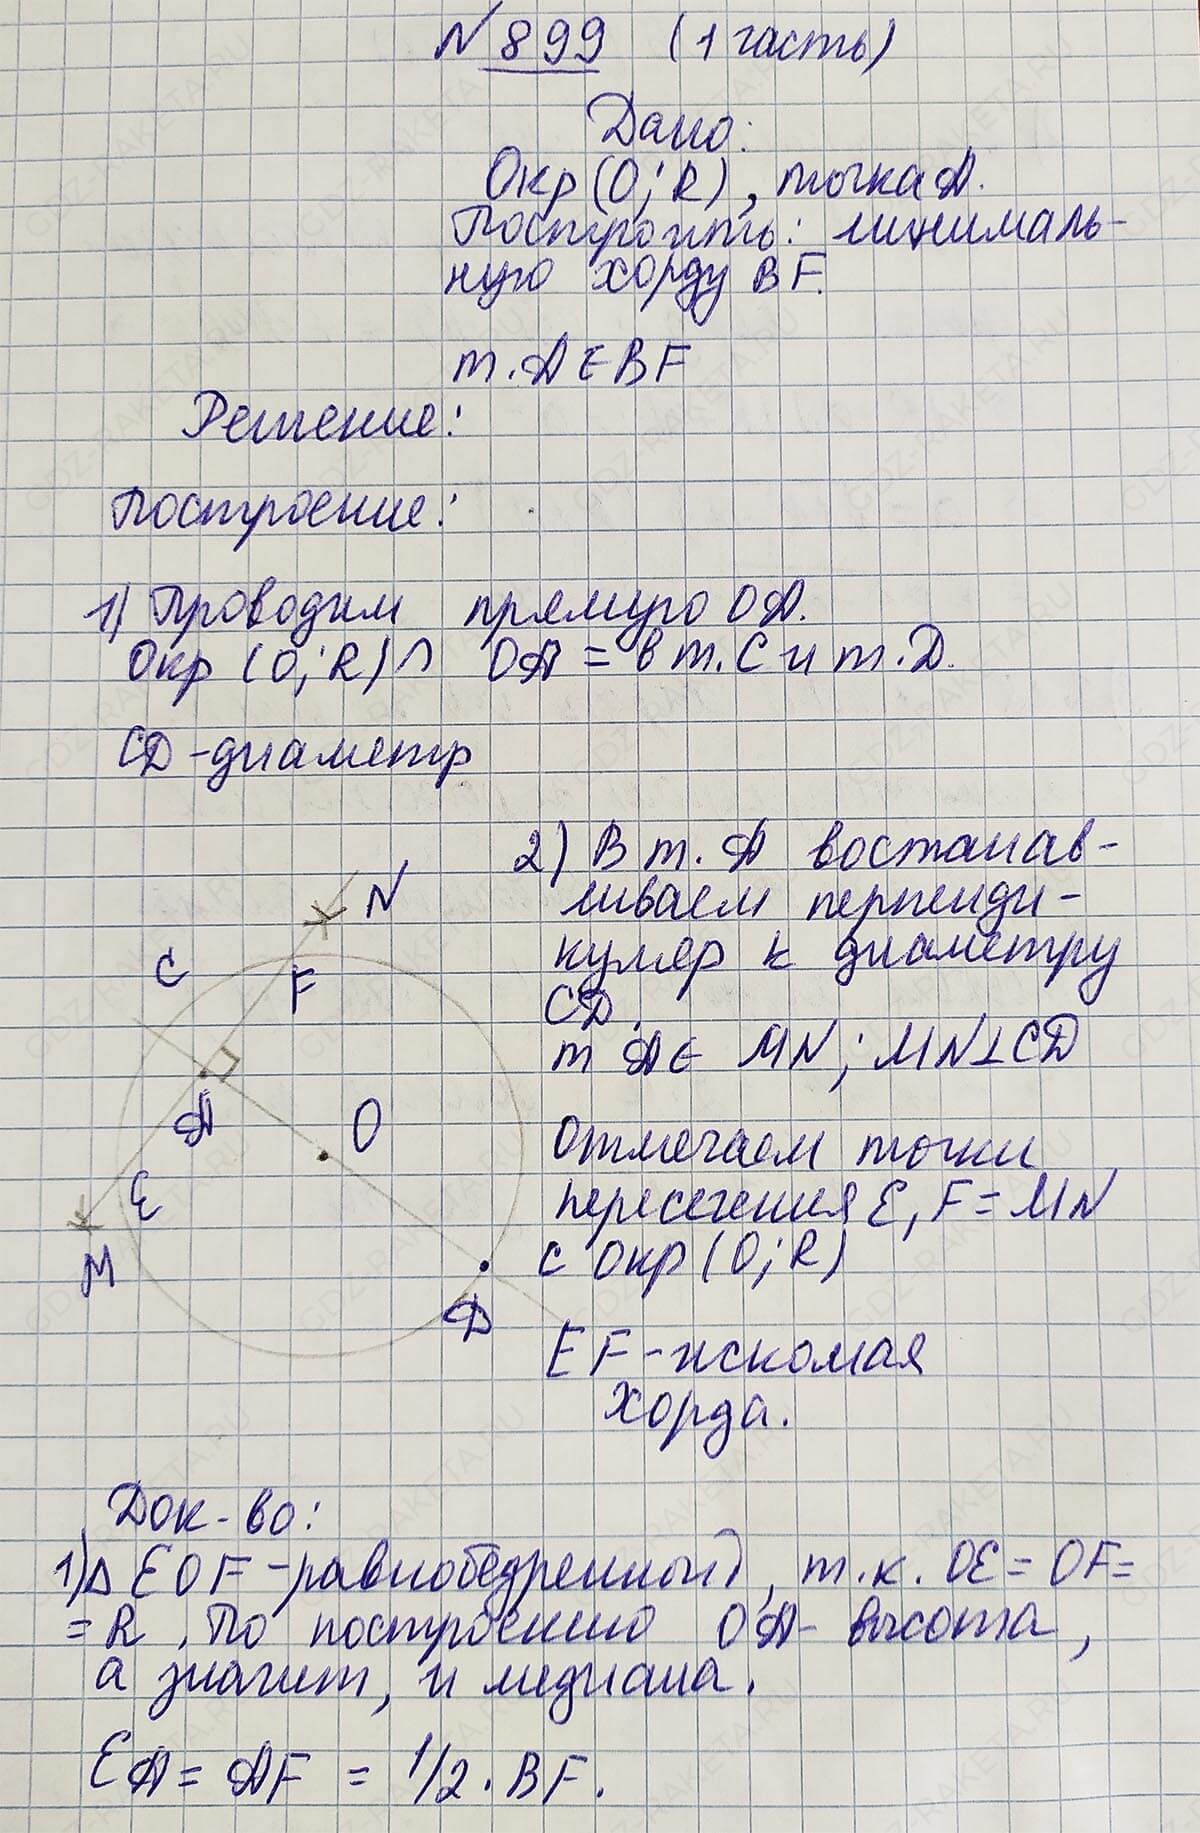 N 899 (1 часть)
Дано:
Окр (O; R), точка A.
Построить: минималь-
ную хорду BF.
т. A ∈ BF
Решение:
Построение:
1) Проводим прямую OA.
Окр (O; R) ∩ OA = в т. C и т. D.
CD - диаметр
2) В т. A востанав-
ливаем перпенди-
куляр к диаметру
CD.
т A ∈ MN; MN ⊥ CD
Отмечаем точки
пересечения E, F = MN
с окр (O; R)
EF - искомая
хорда.
N
C
F
A
O
E
M
D
Док-во:
1) △ EOF - равнобедренный, т.к. OE = OF =
= R. По построению OA - высота,
а значит, и медиана.
EA = AF = 1/2 · BF.
GDZ-RAKETA.RU